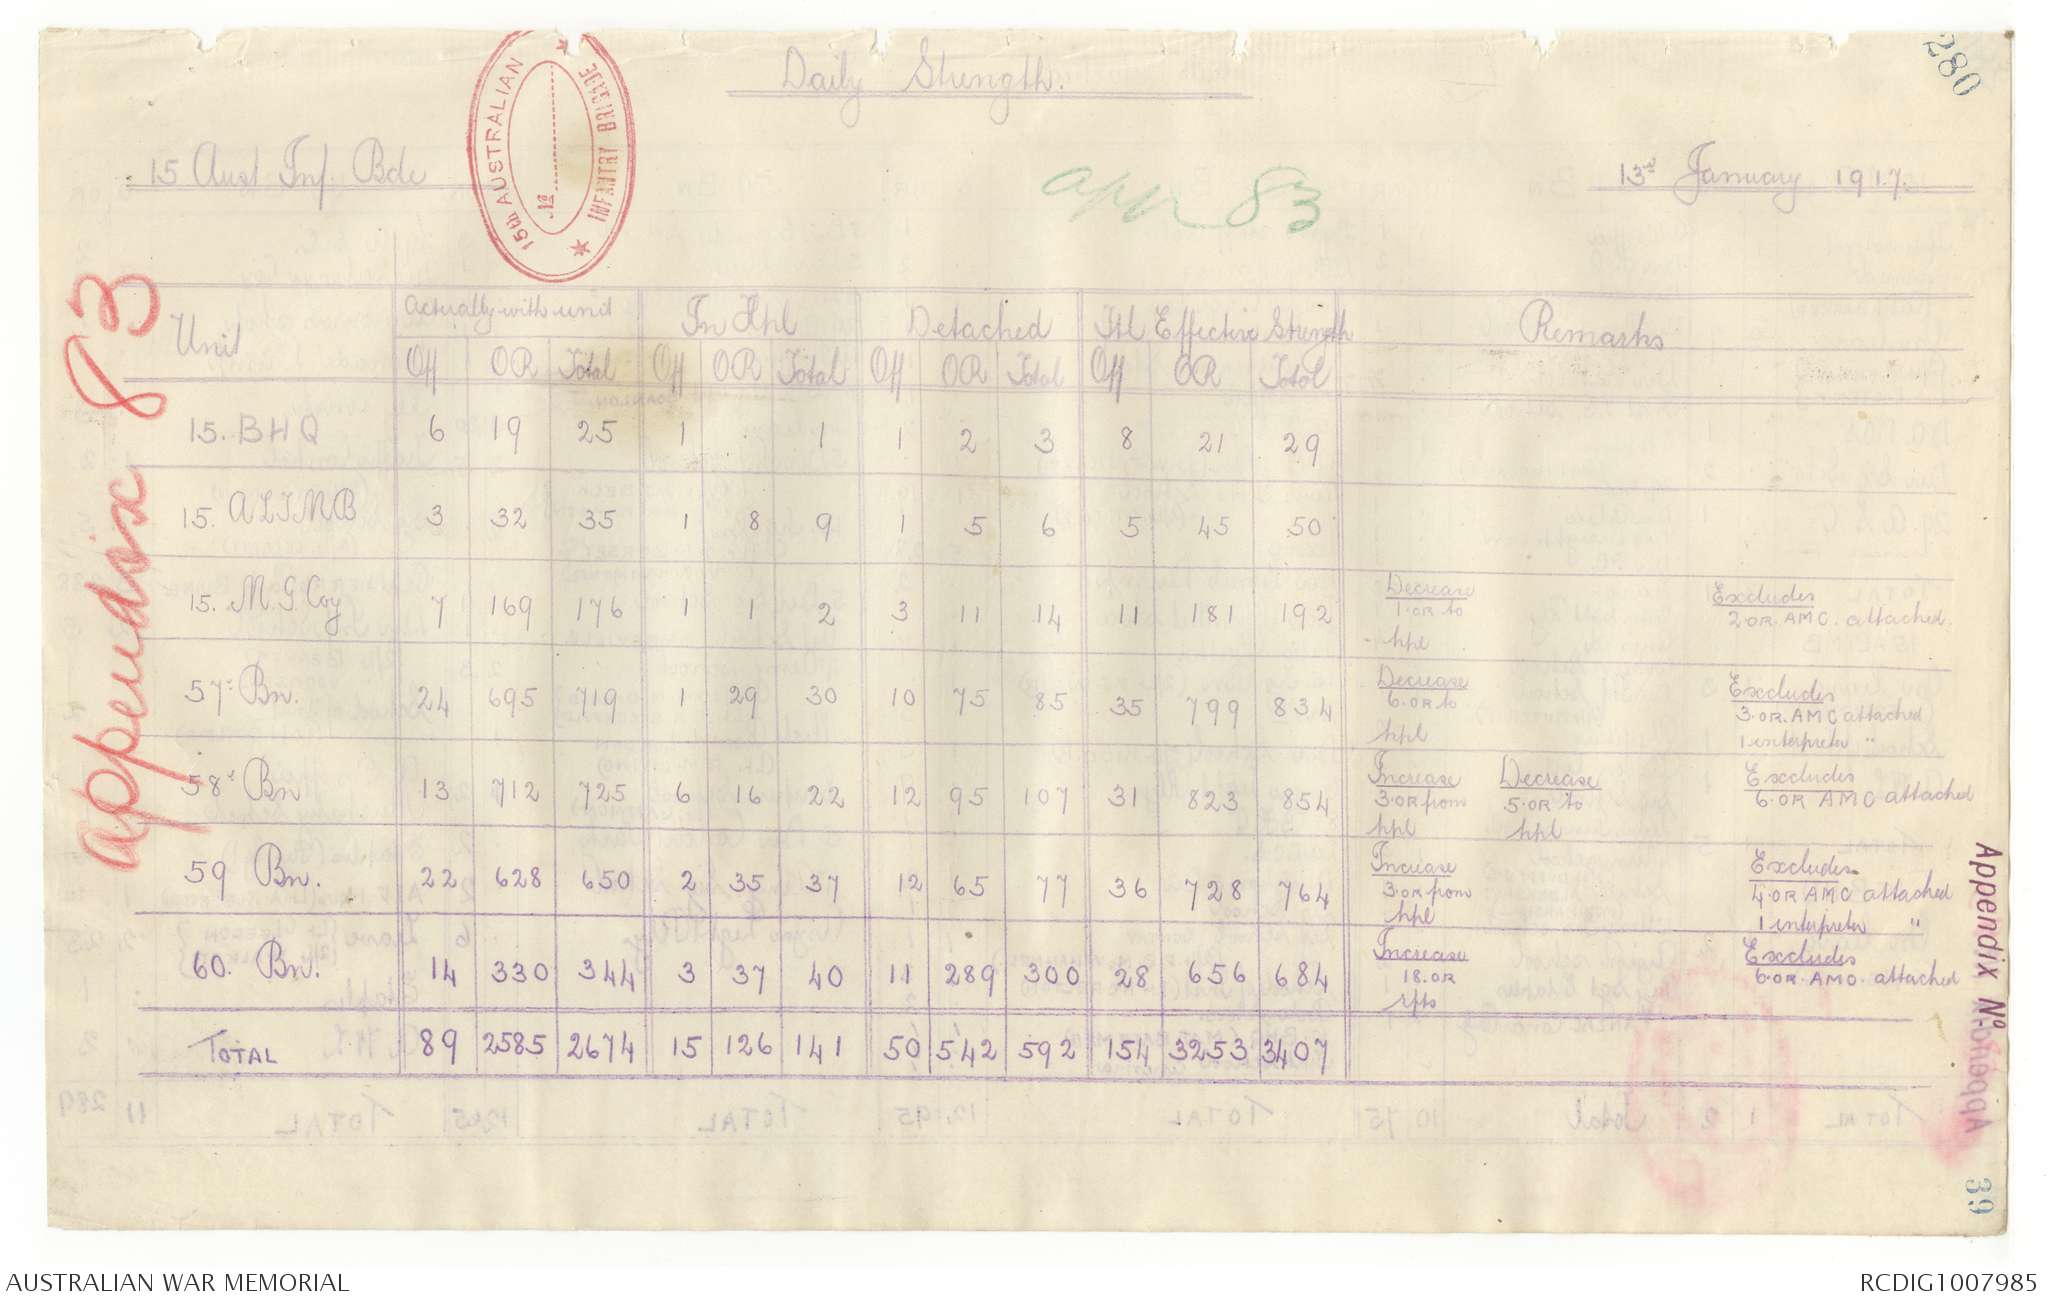 280
Daily Strength.
15TH AUSTRALIAN
INFANTRY BRIGADE
No
15 Aust Inf. Bde
app 83
13th January 1917.
Appendix 83
Unit | Actually with unit | In Hpl | Detached | Ttl Effective Strength | Remarks
Off | OR | Total | Off | OR | Total | Off | OR | Total | Off | OR | Total
15. BHQ | 6 | 19 | 25 | 1 | . | 1 | 1 | 2 | 3 | 8 | 21 | 29
15. ALTMB | 3 | 32 | 35 | 1 | 8 | 9 | 1 | 5 | 6 | 5 | 45 | 50
15. M.G. Coy | 7 | 169 | 176 | 1 | 1 | 2 | 3 | 11 | 14 | 11 | 181 | 192 | Decrease | Excludes
1.OR to | 2.OR.AMC. attached.
hpl
57th Bn. | 24 | 695 | 719 | 1 | 29 | 30 | 10 | 75 | 85 | 35 | 799 | 834 | Decrease | Excludes
6.OR to | 3.OR.AMC attached
hpl | 1 interpreter "
58th Bn | 13 | 712 | 725 | 6 | 16 | 22 | 12 | 95 | 107 | 31 | 823 | 854 | Increase | Decrease | Excludes
3.OR from | 5.OR to | 6.OR AMC attached
hpl | hpl
59 Bn. | 22 | 628 | 650 | 2 | 35 | 37 | 12 | 65 | 77 | 36 | 728 | 764 | Increase | Excludes
3.OR from | 4.OR AMC attached
hpl | 1 interpreter "
60. Bn. | 14 | 330 | 344 | 3 | 37 | 40 | 11 | 289 | 300 | 28 | 656 | 684 | Increase | Excludes
18.OR | 6.OR.AMC. attached
rfts
TOTAL | 89 | 2585 | 2674 | 15 | 126 | 141 | 50 | 542 | 592 | 154 | 3253 | 3407
Appendix No.
39
AUSTRALIAN WAR MEMORIAL
RCDIG1007985